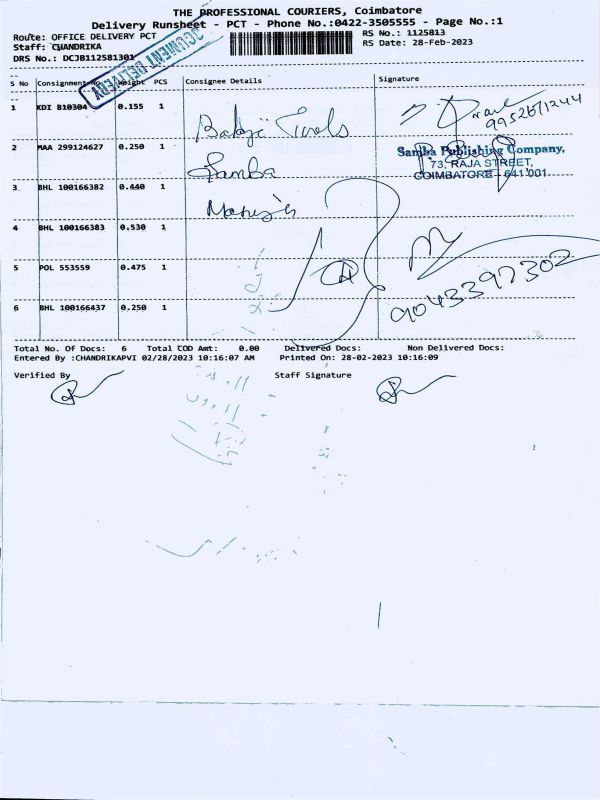 THE PROFESSIONAL COURIERS, Coimbatore
Delivery Runsheet - PCT - Phone No.:0422-3505555 - Page No.:1
Route: OFFICE DELIVERY PCT RS No.: 1125813
Staff: CHANDRIKA RS Date: 28-Feb-2023
DRS No.: DCJB112581301
DOCUMENT DELIVERY
S No Consignment No Weight PCS Consignee Details Signature
1 KDI 810304 0.155 1
9952671244
2 MAA 299124627 0.250 1 Samba
Samba Publishing Company,
73, RAJA STREET,
COIMBATORE - 641 001
3 BHL 100166382 0.440 1
4 BHL 100166383 0.530 1
5 POL 553559 0.475 1
9043397302
6 BHL 100166437 0.250 1
Total No. Of Docs: 6 Total COD Amt: 0.00 Delivered Docs: Non Delivered Docs:
Entered By :CHANDRIKAPVI 02/28/2023 10:16:07 AM Printed On: 28-02-2023 10:16:09
Verified By Staff Signature